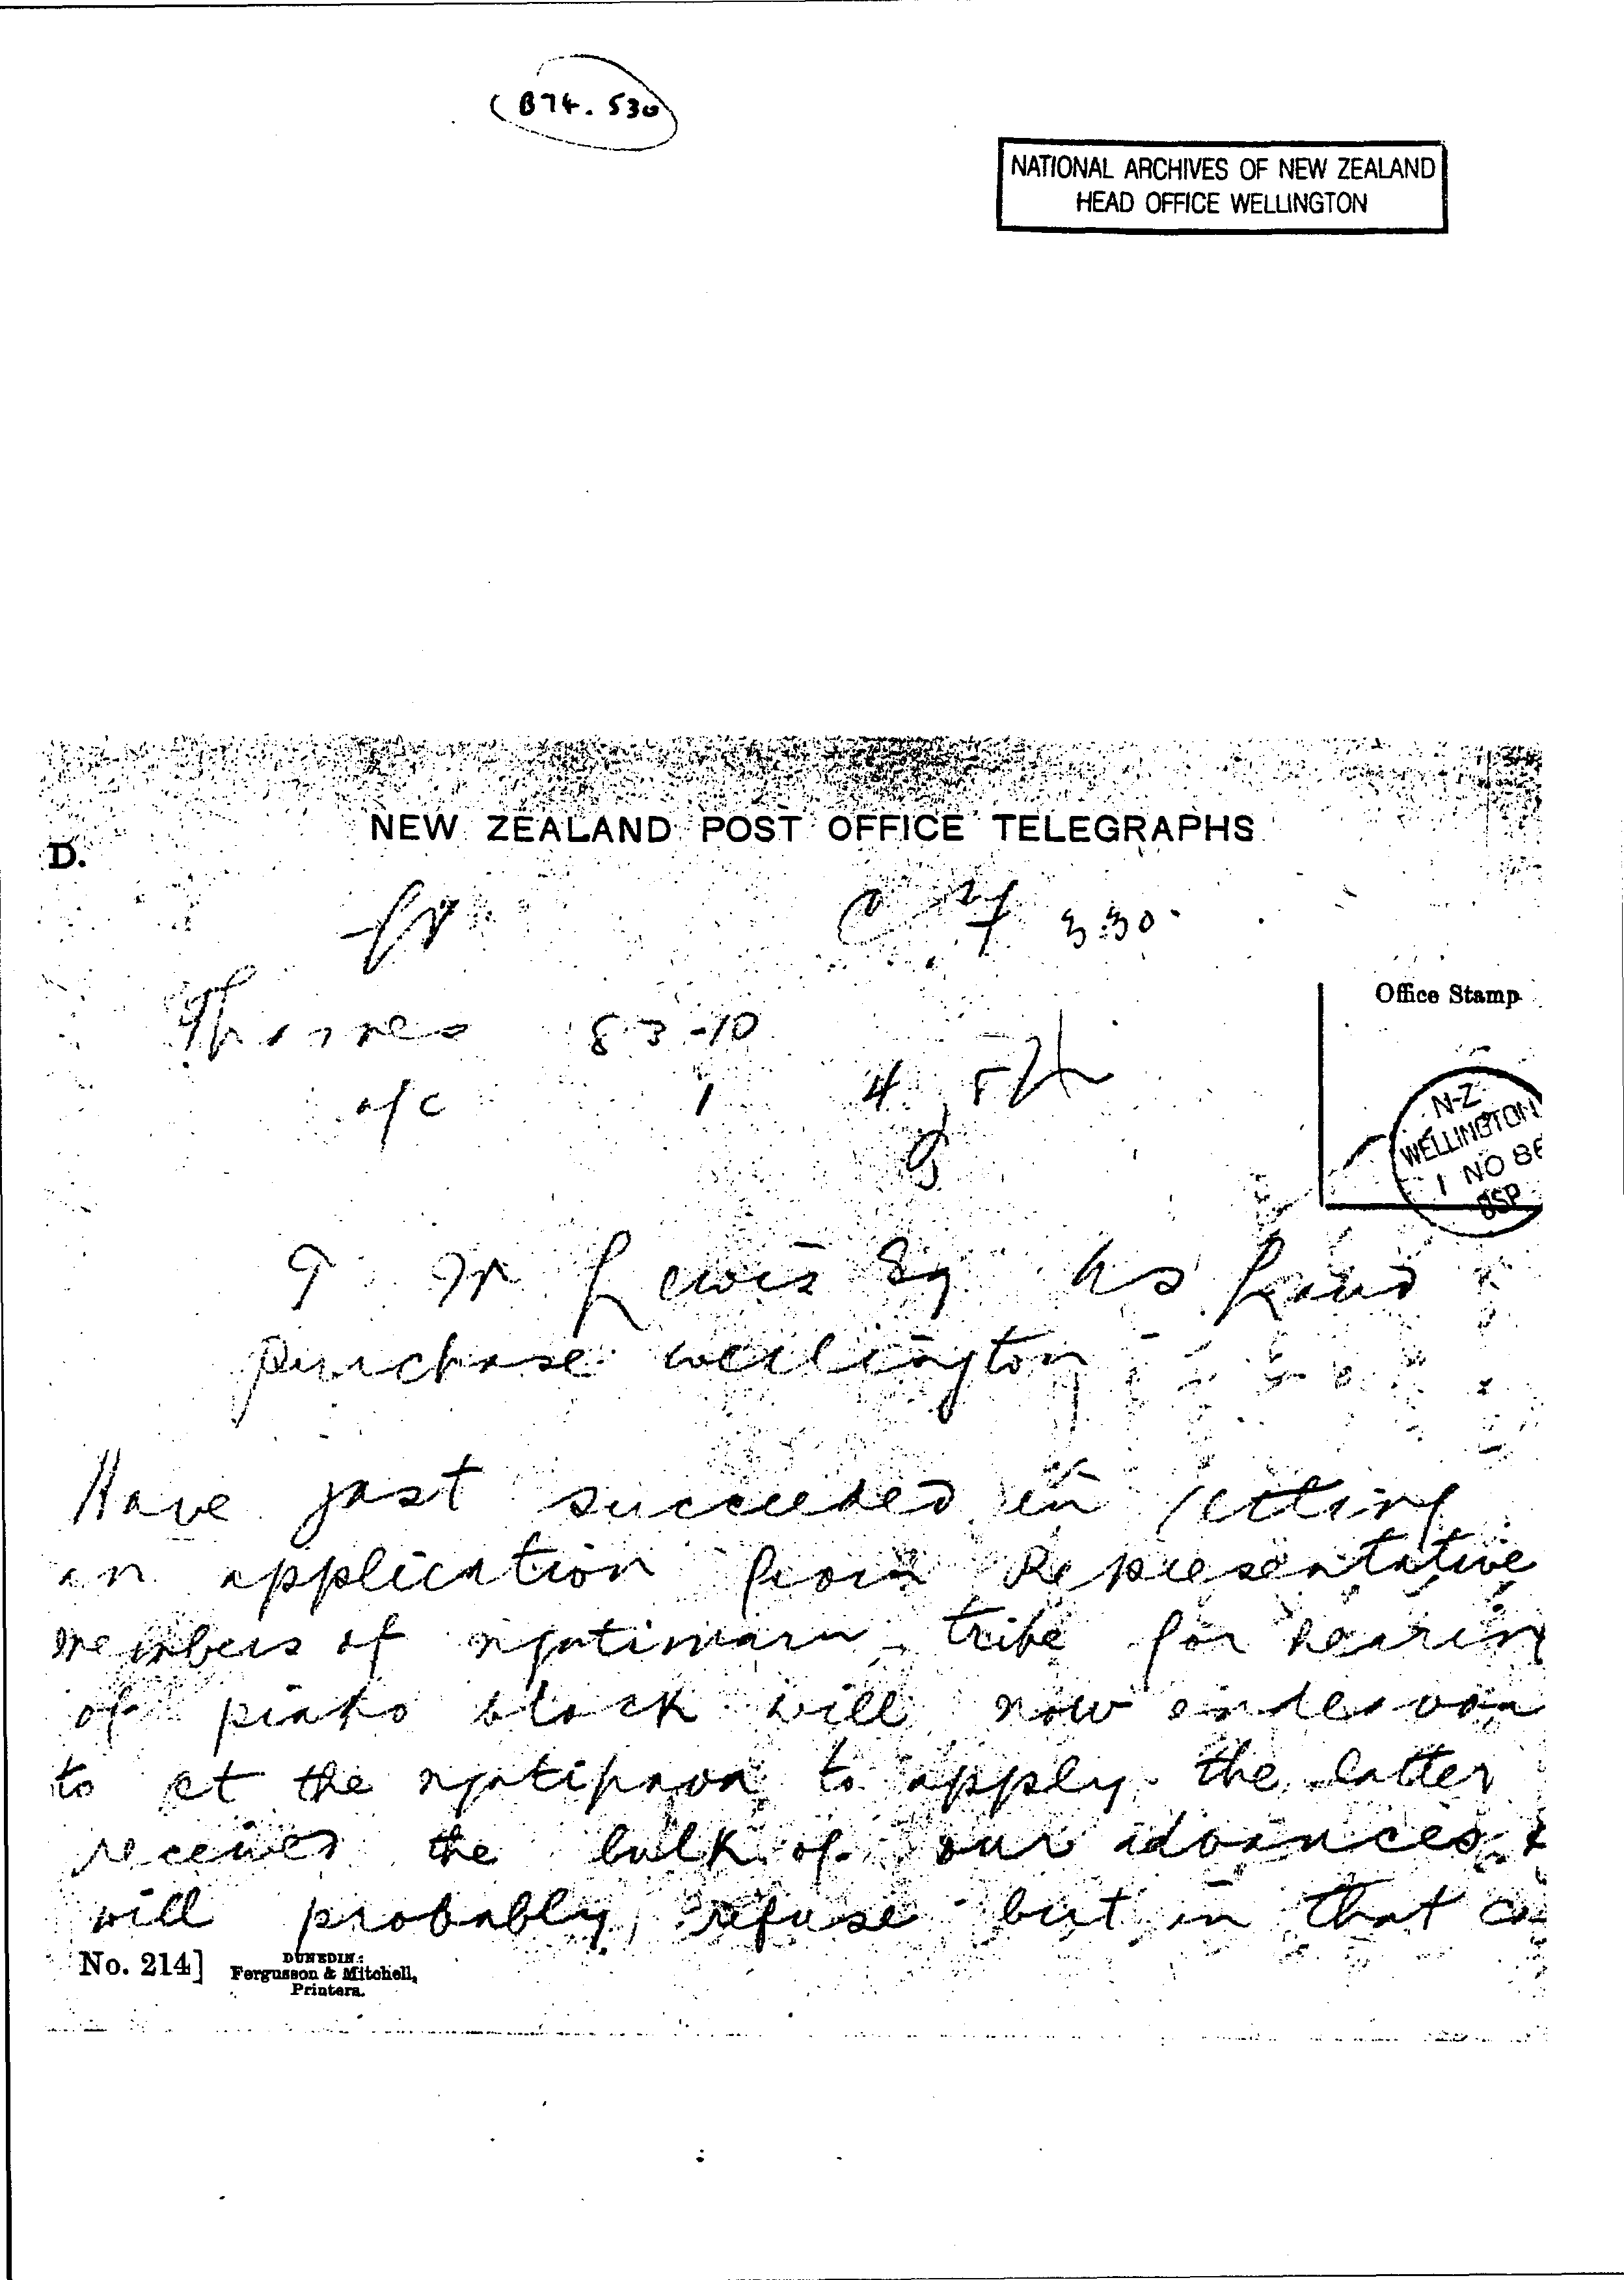 B74.530
NATIONAL ARCHIVES OF NEW ZEALAND
HEAD OFFICE WELLINGTON
NEW ZEALAND POST OFFICE TELEGRAPHS
D.
3.30
Office Stamp
Thames 83-10
o/c 1 4
N-Z
WELLINGTON
1 NO 86
T W Lewis Esq Land
purchase wellington
Have just succeeded in getting
an application from Representative
members of ngatimaru tribe for hearing
of piako block will now endeavour
to get the ngatipaoa to apply the latter
received the bulk of our advances &
will probably refuse but in that
No. 214]
DUNEDIN:
Fergusson & Mitchell,
Printers.